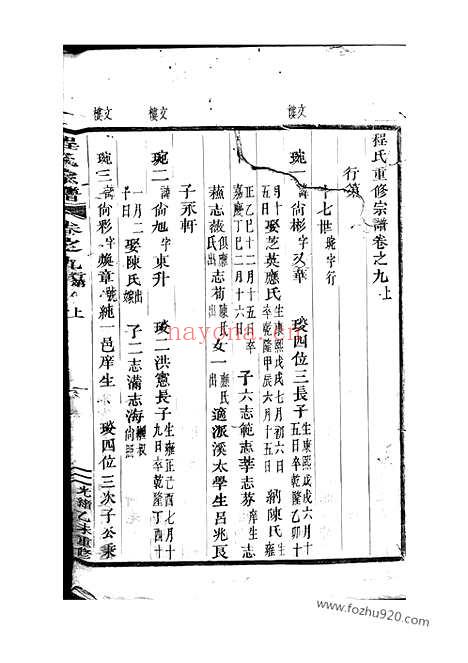 程氏重修宗譜卷之九上
行第
十七世琬字行
文樓
琬一諱尙彬字又華 琰四位三長子生康熙戊戌六月十五日卒乾隆乙卯十
月十五日娶芝英應氏生康熙戊戌七月初六日卒乾隆甲辰六月十五日納陳氏生
正乙巳十二月十五卒嘉慶丁巳二月十六子六志範志莘志芬庠生志
志葰俱應氏出志荀陳氏出女一應氏出適派溪太學生呂兆良
子永軒
文樓
琬二諱尙旭字東升 琰二洪憲長子生雍正己酉七月十九日卒乾隆丁酉十
一月二十日娶陳氏嫁出子二志滿志海繼叔尙臣
文樓
琬三諱尙彩字煥章號純一邑庠生 琰四位三次子公秉
程氏宗譜
卷之九 上
光緒乙未重修
nayona.cn
www.fozhu920.com